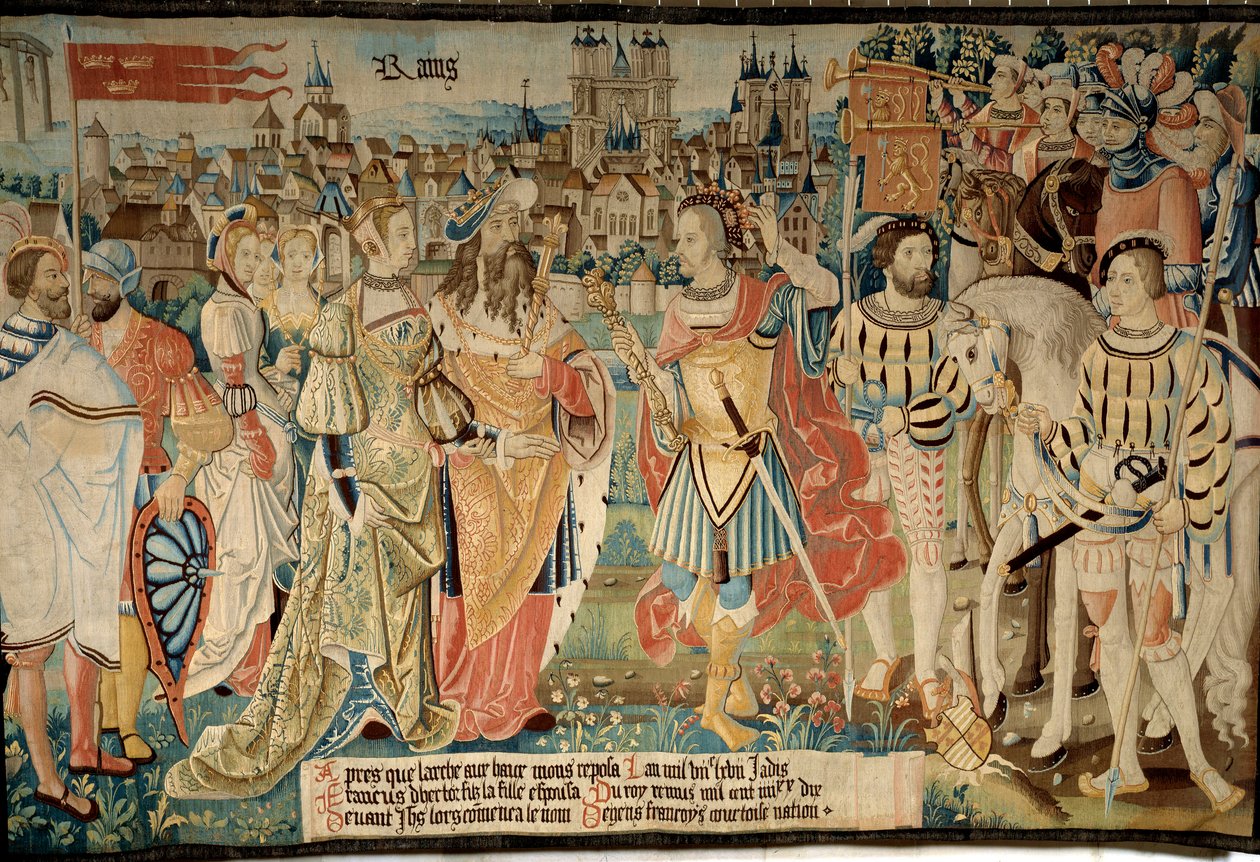 Rains
Apres que larche aux haux mons reposa Lan mil viiᶜ lxvii Jadis
Francus dhector filz la fille espousa Du roy remus mil cent iiiiˣˣ dix
Devant Jhs lors com̄enca le nom Degens francoys courtoise nation